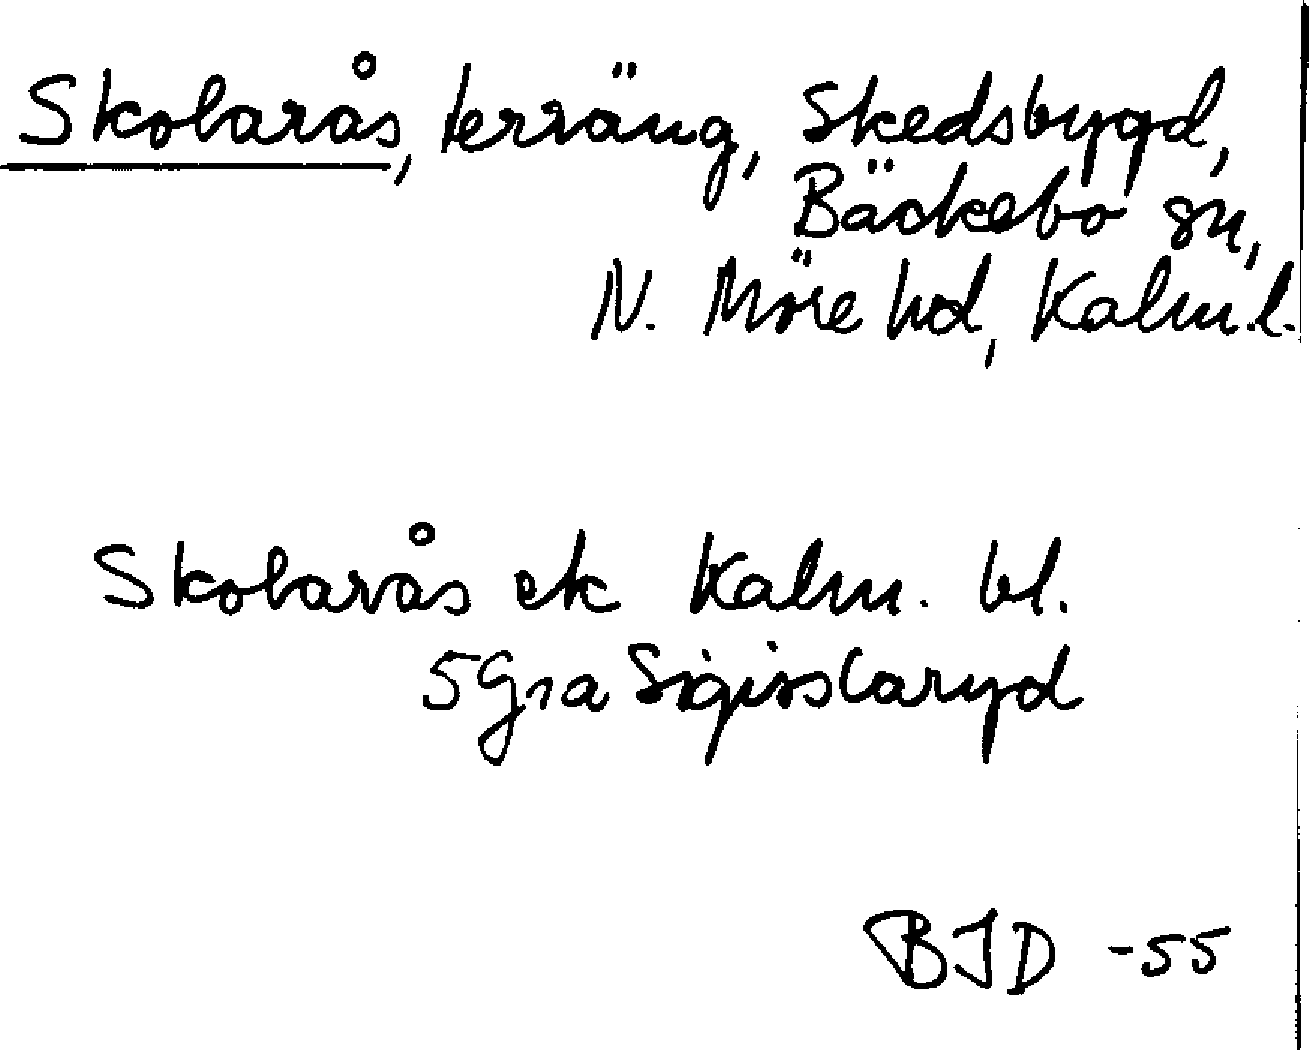 Skobarås, terräng, Skedsbygd,
Bäckebo sn,
N. Möre hd, Kalm.l.
Skobarås ek Kalm. bl.
5 Gjra Sigislaryd
BJD -55